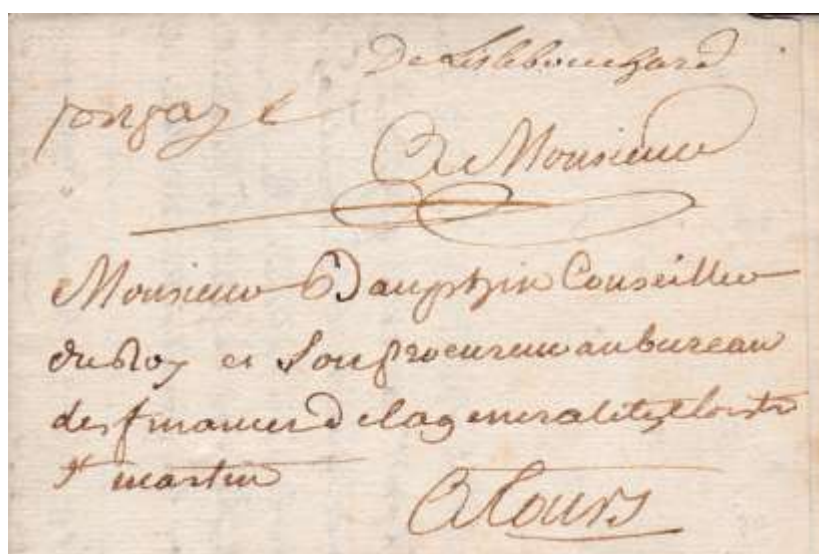 De Lislebouchard
port payé
A Monsieur
Monsieur Dauphin Conseiller
du Roy et son procureur au bureau
des finances de la generalité cloistre
St martin
A Tours